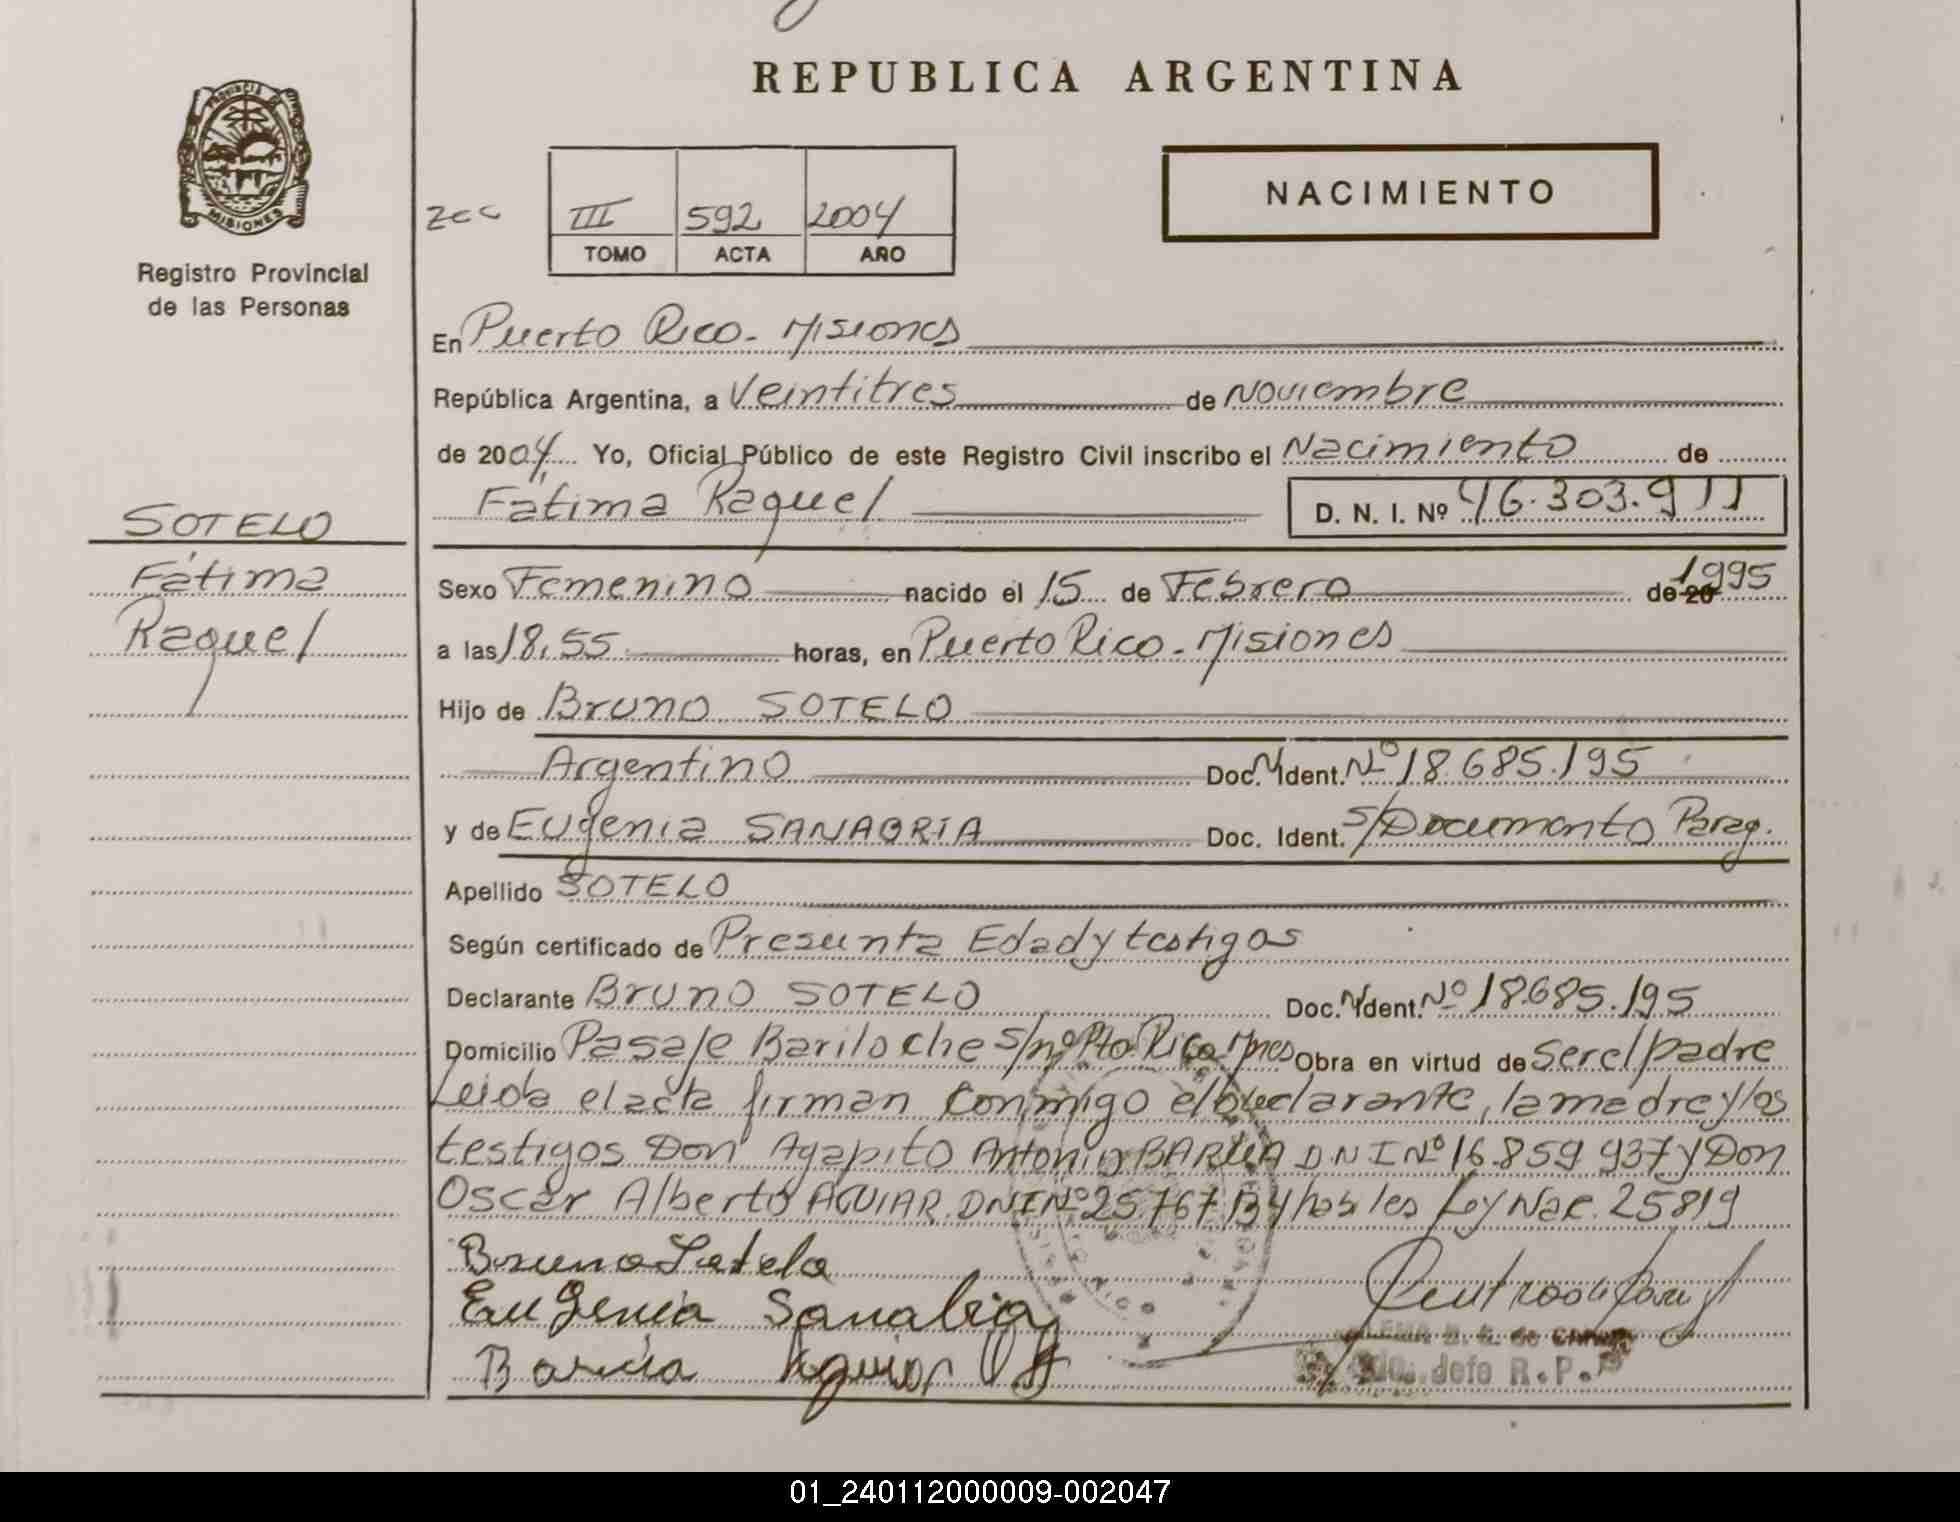 REPUBLICA ARGENTINA
PROVINCIA DE
MISIONES
Registro Provincial
de las Personas
NACIMIENTO
III 592 2004
TOMO ACTA AÑO
En Puerto Rico - Misiones
República Argentina, a Veintitres de Noviembre
de 2004 Yo, Oficial Público de este Registro Civil inscribo el Nacimiento de
Fátima Raquel D. N. I. Nº 46.303.911
SOTELO
Fátima
Raquel
Sexo Femenino nacido el 15 de Febrero de 20 1995
a las 18,55 horas, en Puerto Rico - Misiones
Hijo de Bruno SOTELO
Argentino Doc. N. Ident. Nº 18.685.195
y de Eugenia SANABRIA Doc. Ident. S/Documento Parag.
Apellido SOTELO
Según certificado de Presunta Edad y testigos
Declarante Bruno SOTELO Doc. N. Ident. Nº 18.685.195
Domicilio Pasaje Bariloche S/nº Pto. Rico Mnes Obra en virtud de Ser el padre
Leida el acta firman conmigo el declarante, la madre y los
testigos Don Agapito Antonio BARUA DNI Nº 16.859.937 y Don
Oscar Alberto AGUIAR DNI Nº 25.767.134 habiles Ley Nac. 25819
Bruno Sotelo
Eugenia Sanabria
Barua Aguiar
de
Jefe R.P.
01_240112000009-002047